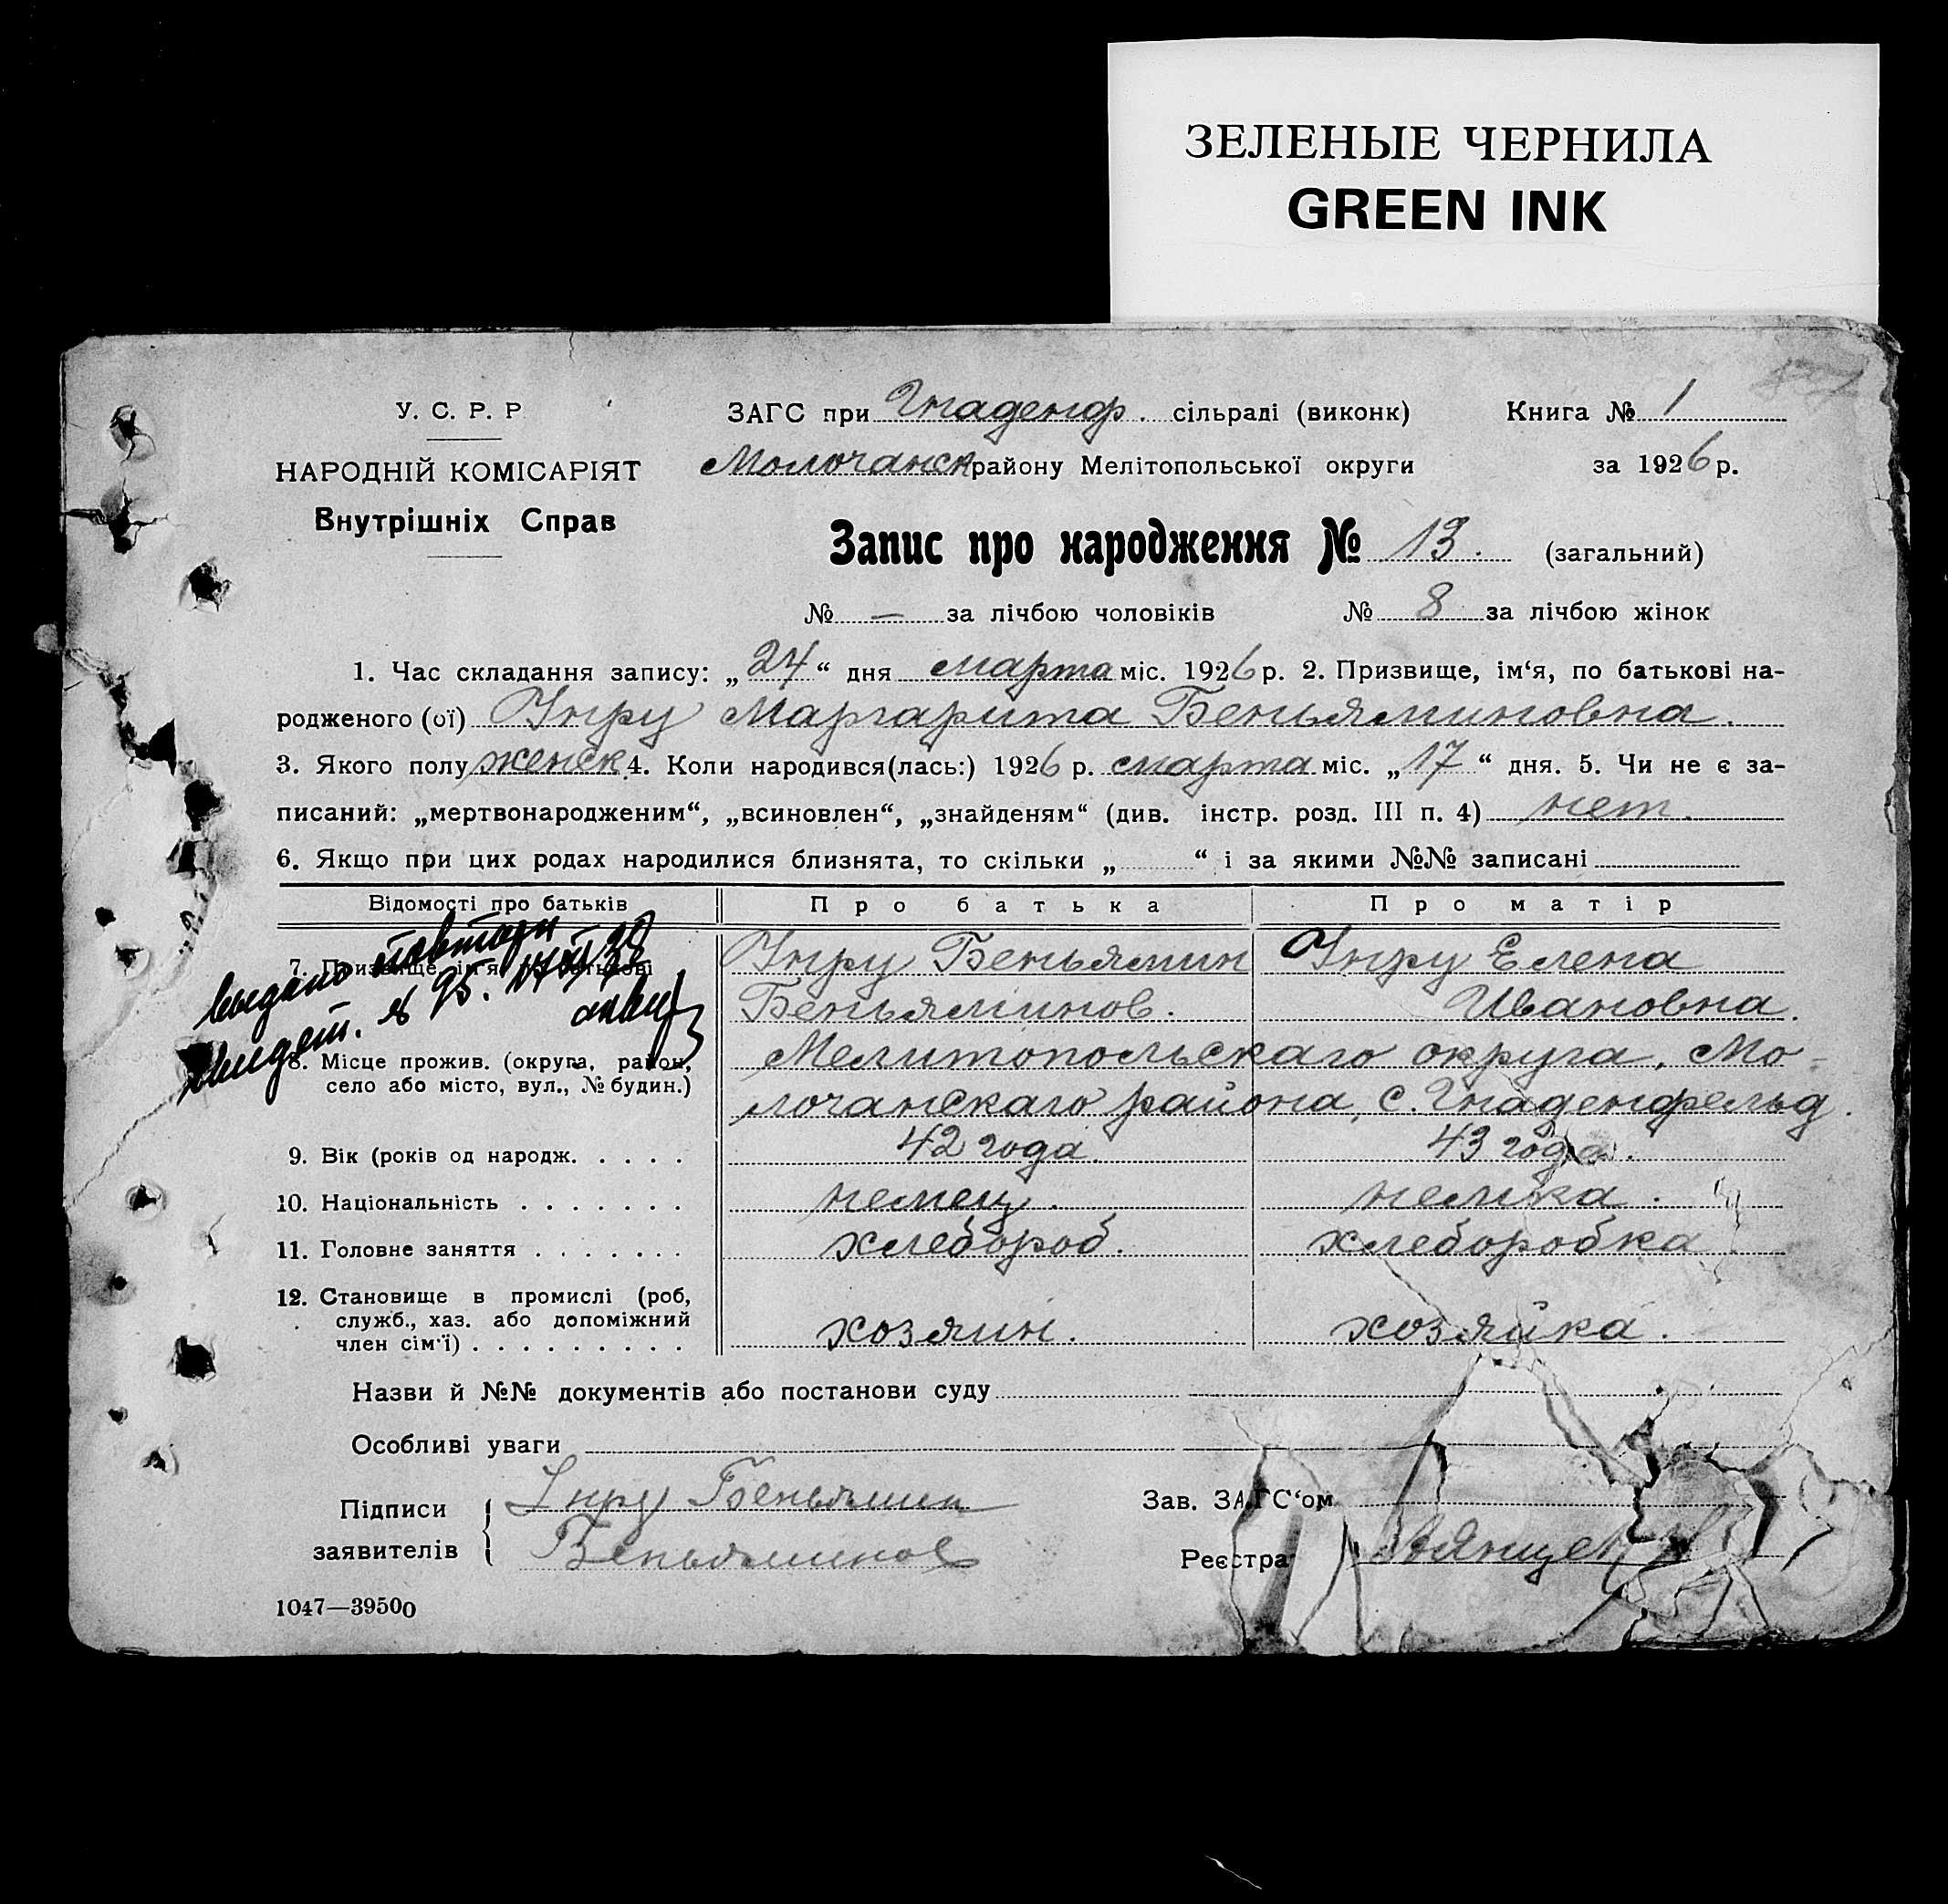 ЗЕЛЕНЫЕ ЧЕРНИЛА
GREEN INK
У. С. Р. Р
ЗАГС при Гнаденф. сільраді (виконк)
Книга № 1
НАРОДНІЙ КОМІСАРІЯТ
Молочанск району Мелітопольської округи
за 1926 р.
Внутрішніх Справ
Запис про народження № 13. (загальний)
№ — за лічбою чоловіків № 8 за лічбою жінок
1. Час складання запису: „24“ дня марта міс. 1926 р. 2. Призвище, ім‘я, по батькові на-
родженого (ої) Унру Маргарита Беньяминовна.
3. Якого полу женск 4. Коли народився(лась:) 1926 р. марта міс. „17“ дня. 5. Чи не є за-
писаний: „мертвонародженим“, „всиновлен“, „знайденям“ (див. інстр. розд. III п. 4) нет.
6. Якщо при цих родах народилися близнята, то скільки „ “ і за якими №№ записані
Відомості про батьків
Про батька
Про матір
выдано повторн
свидет. № 95.
7. Призвище, ім‘я, по батькові
Унру Беньямин
Унру Елена
Беньяминов.
Ивановна.
8. Місце прожив. (округа, район,
село або місто, вул., № будин.)
Мелитопольскаго округа, Мо-
лочанскаго района, с. Гнаденфельд.
9. Вік (років од народж. . . . .
42 года.
43 года.
10. Національність . . . . . . .
немец.
немка.
11. Головне заняття . . . . . . .
хлебороб.
хлеборобка
12. Становище в промислі (роб,
служб., хаз. або допоміжний
член сім‘ї) . . . . . . . . .
хозяин.
хозяйка.
Назви й №№ документів або постанови суду
Особливі уваги
Підписи
заявителів
Унру Беньямин
Беньяминов
Зав. ЗАГС‘ом
Реєстра
1047—39500